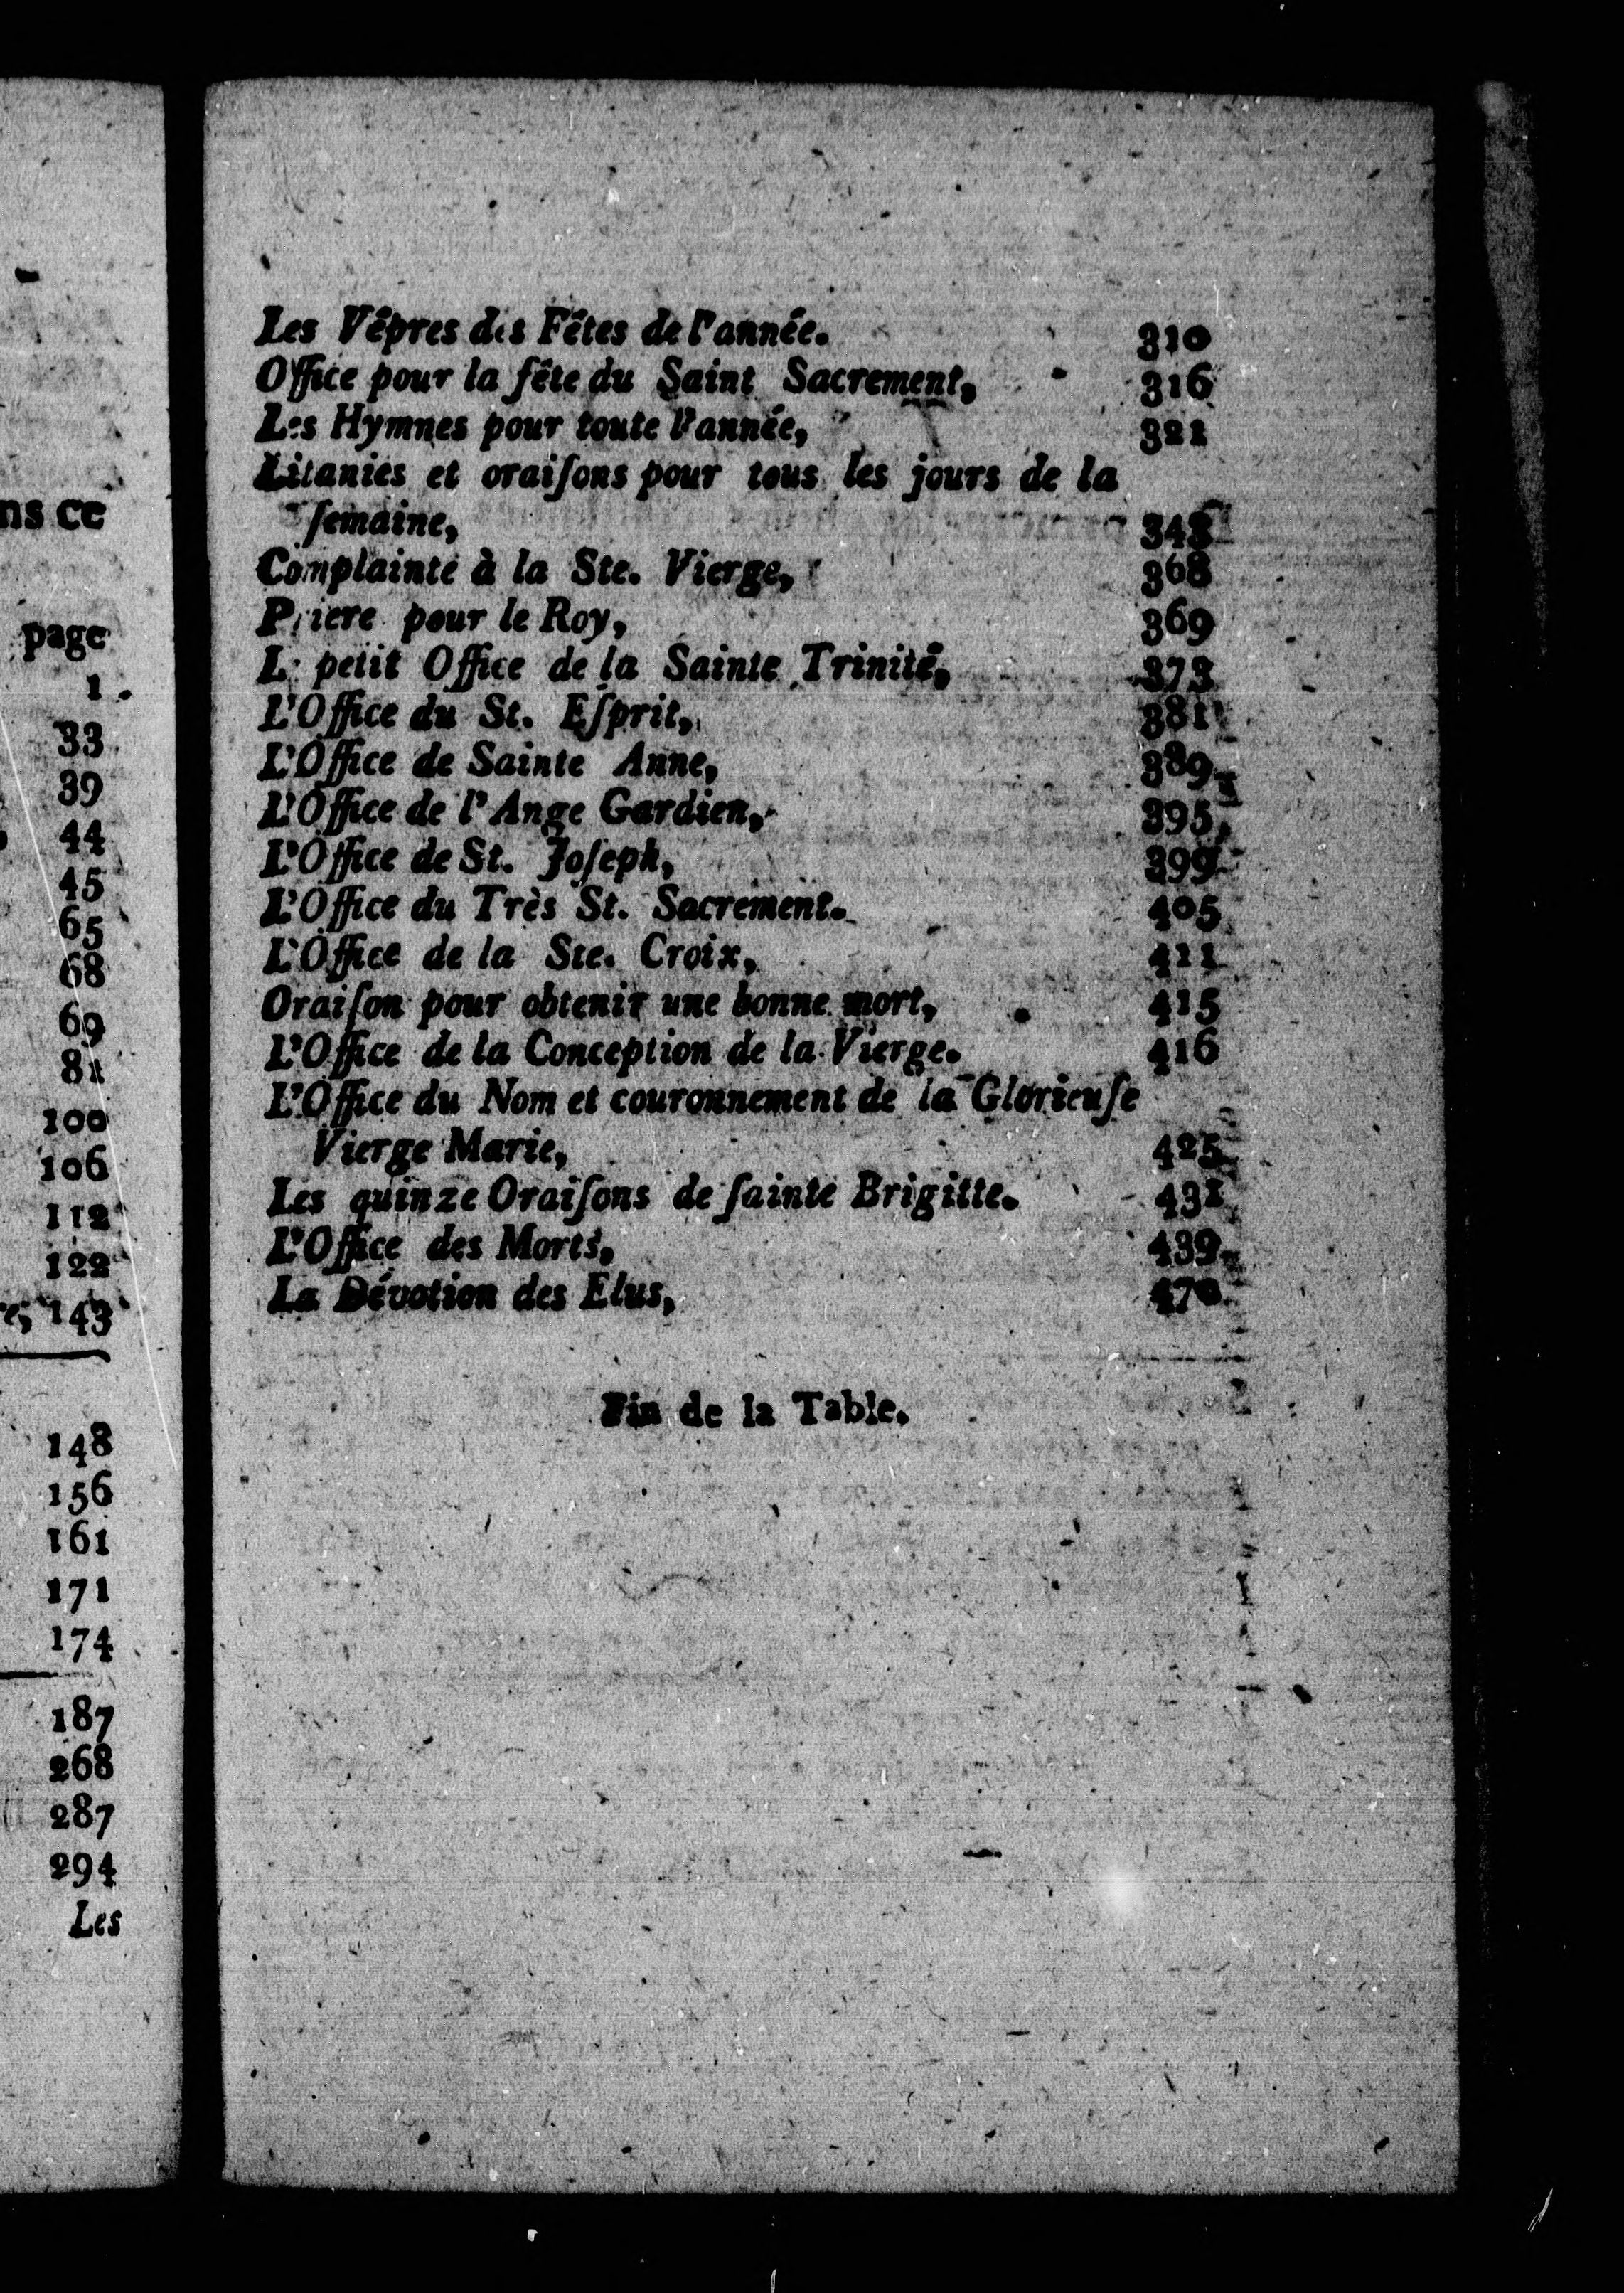 ns ce
page
1.
33
39
44
45
65
68
69
81
100
106
112
122
e, 143
148
156
161
171
174
187
268
287
294
Les
Les Vêpres des Fêtes de l'année. 310
Office pour la fête du Saint Sacrement, 316
Les Hymnes pour toute l'année, 321
Litanies et oraiſons pour tous les jours de la
ſemaine, 343
Complainte à la Ste. Vierge, 368
Priere pour le Roy, 369
L petit Office de la Sainte Trinité, 373
L'Office du St. Eſprit, 381
L'Office de Sainte Anne, 389
L'Office de l'Ange Gardien, 395
L'Office de St. Joſeph, 399
L'Office du Très St. Sacrement. 405
L'Office de la Ste. Croix, 411
Oraiſon pour obtenir une bonne mort, 415
L'Office de la Conception de la Vierge. 416
L'Office du Nom et couronnement de la Glorieuſe
Vierge Marie, 425
Les quinze Oraiſons de ſainte Brigitte. 431
L'Office des Morts, 439
La Dévotion des Elus, 470
Fin de la Table.